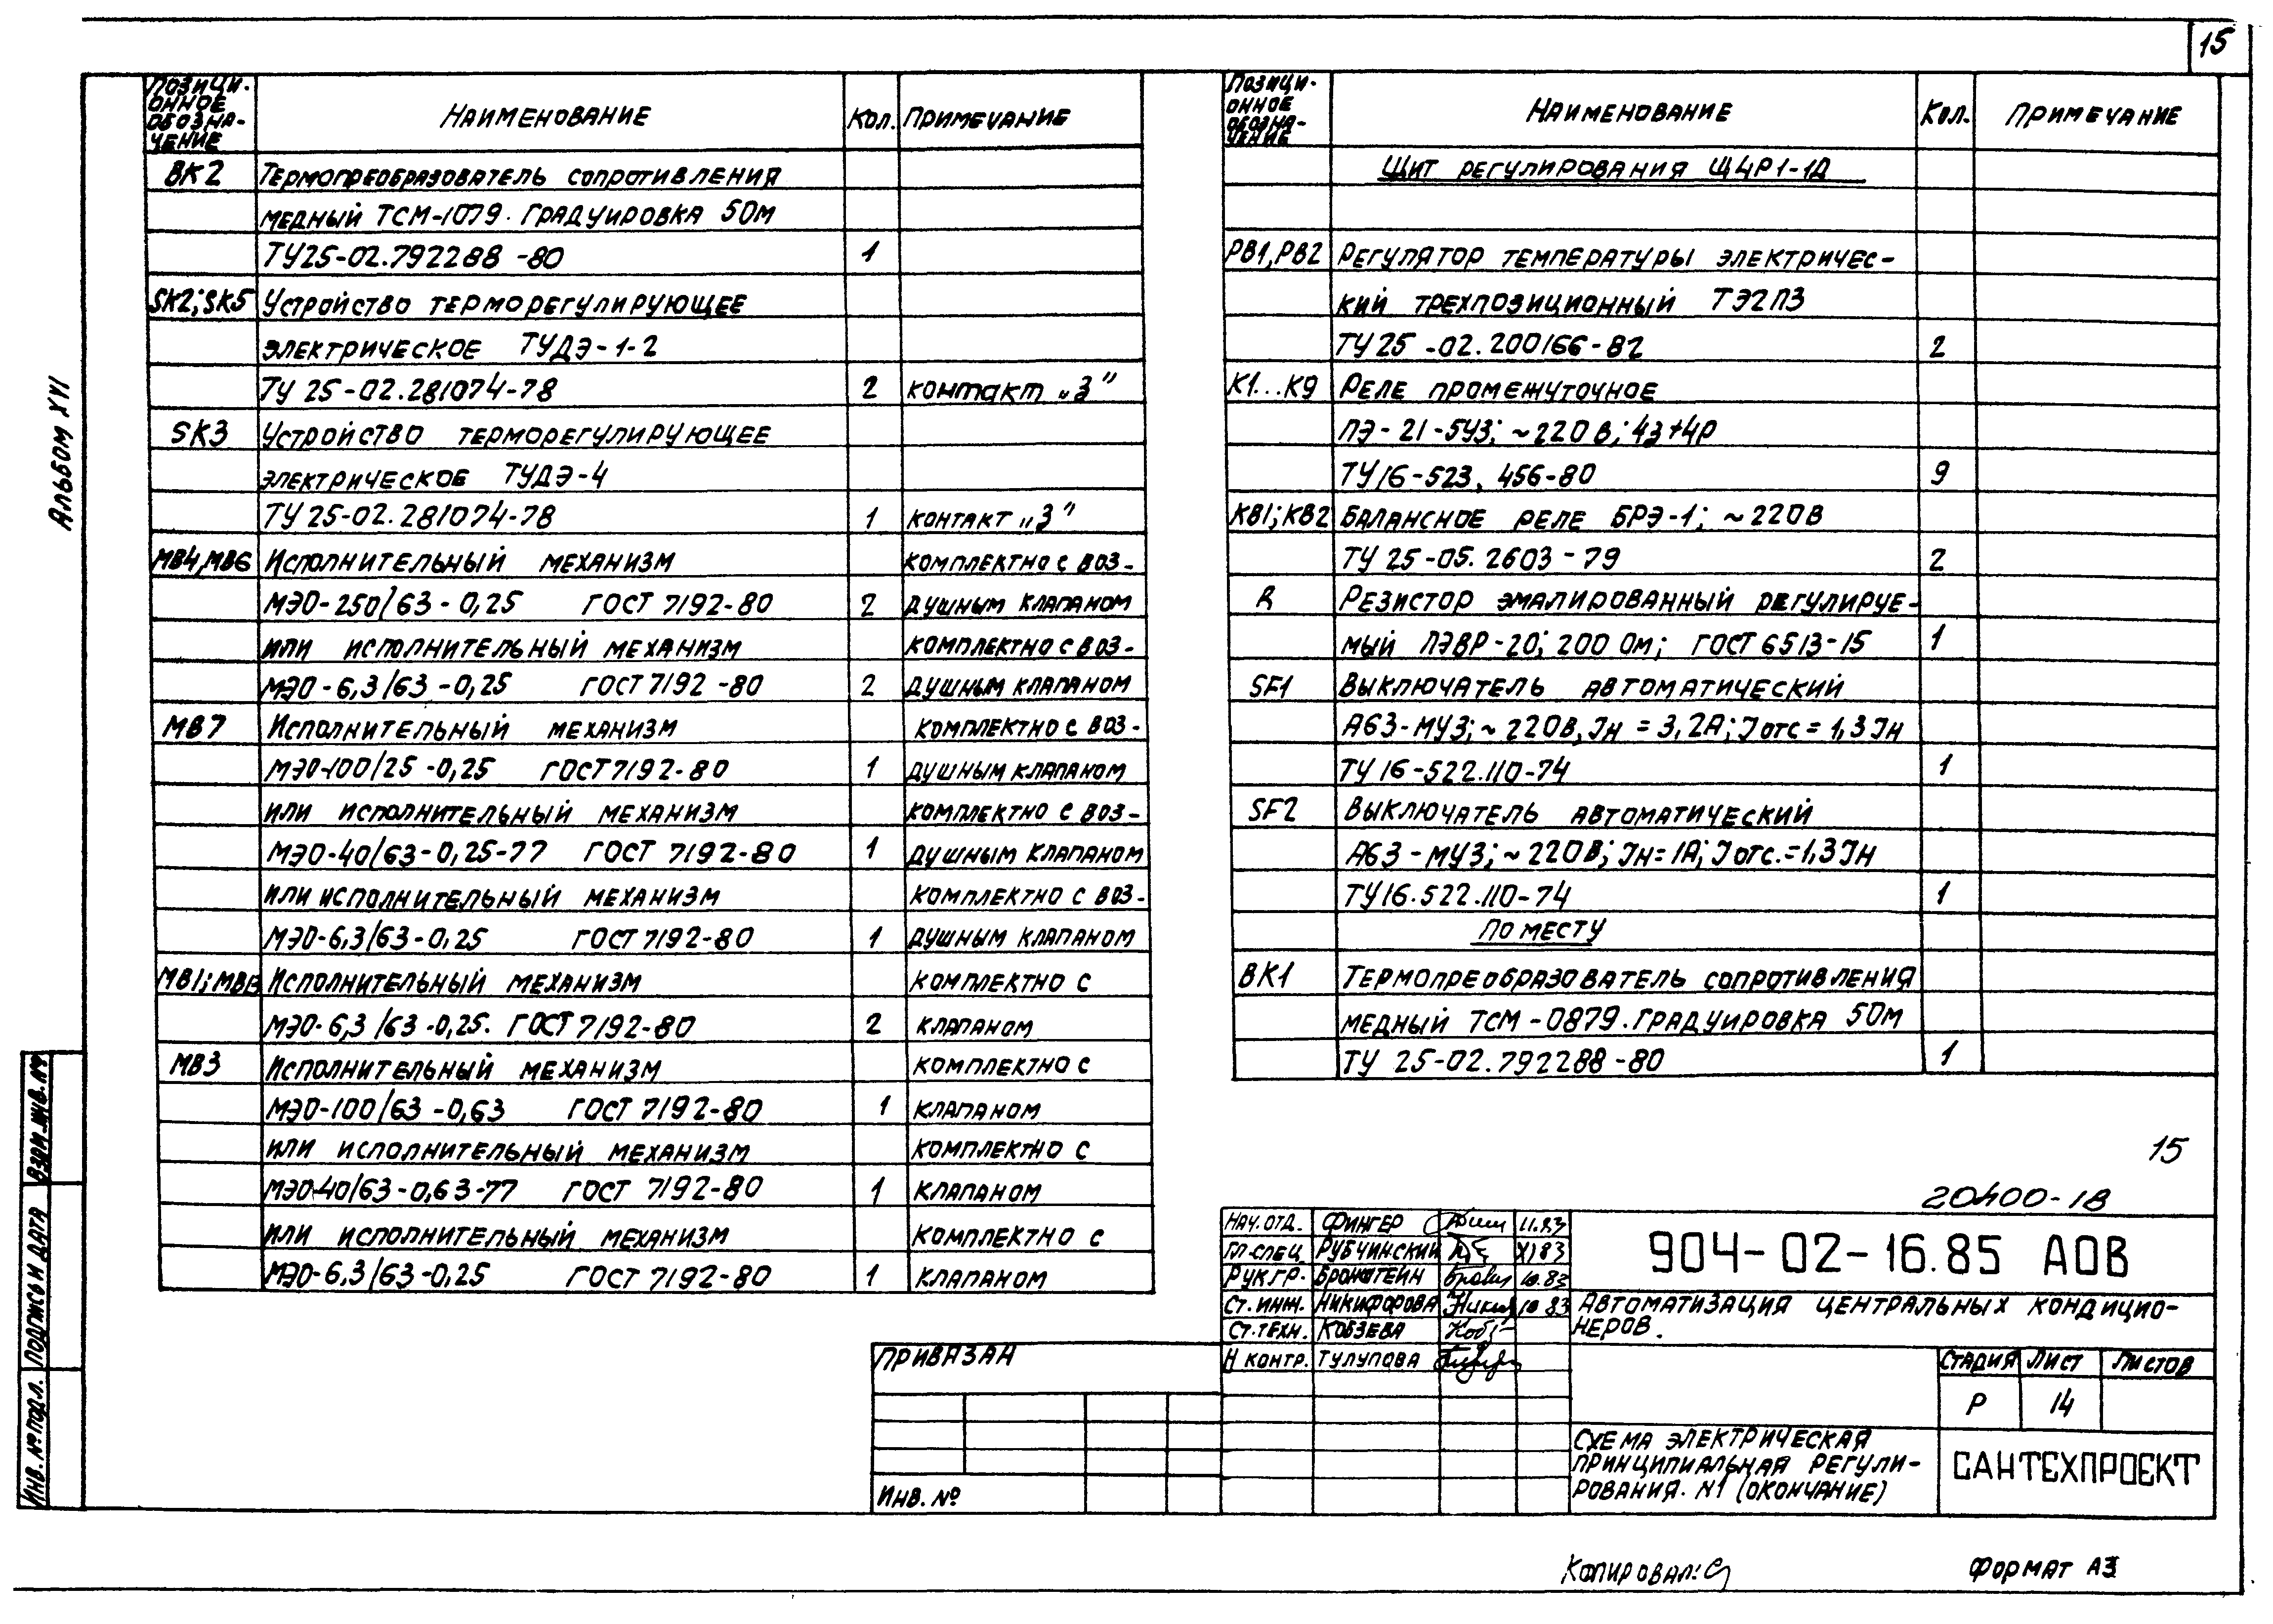 15
Альбом XVI
Позици- онное обозна- чение | Наименование | Кол. | Примечание
ВК2 | Термопреобразователь сопротивления
медный ТСМ-1079. Градуировка 50м
ТУ25-02.792288-80 | 1
SK2; SK5 | Устройство терморегулирующее
электрическое ТУДЭ-1-2
ТУ 25-02.281074-78 | 2 | контакт „З"
SK3 | Устройство терморегулирующее
электрическое ТУДЭ-4
ТУ 25-02.281074-78 | 1 | контакт „З"
МВ4, МВ6 | Исполнительный механизм | комплектно с воз-
МЭО-250/63-0,25 ГОСТ 7192-80 | 2 | душным клапаном
или исполнительный механизм | комплектно с воз-
МЭО-6,3/63-0,25 ГОСТ 7192-80 | 2 | душным клапаном
МВ7 | Исполнительный механизм | комплектно с воз-
МЭО-100/25-0,25 ГОСТ 7192-80 | 1 | душным клапаном
или исполнительный механизм | комплектно с воз-
МЭО-40/63-0,25-77 ГОСТ 7192-80 | 1 | душным клапаном
или исполнительный механизм | комплектно с воз-
МЭО-6,3/63-0,25 ГОСТ 7192-80 | 1 | душным клапаном
МВ1; | Исполнительный механизм | комплектно с
МЭО-6,3/63-0,25. ГОСТ 7192-80 | 2 | клапаном
МВ3 | Исполнительный механизм | комплектно с
МЭО-100/63-0,63 ГОСТ 7192-80 | 1 | клапаном
или исполнительный механизм | комплектно с
МЭО-40/63-0,63-77 ГОСТ 7192-80 | 1 | клапаном
или исполнительный механизм | комплектно с
МЭО-6,3/63-0,25 ГОСТ 7192-80 | 1 | клапаном
Позици- онное обозна- чение | Наименование | Кол. | Примечание
Щит регулирования Щ4Р1-1Д
РВ1, РВ2 | Регулятор температуры электричес-
кий трехпозиционный ТЭ2П3
ТУ 25-02.200166-82 | 2
К1...К9 | Реле промежуточное
ПЭ-21-5У3; ~220В; 4з+4р
ТУ16-523.456-80 | 9
КВ1; КВ2 | Балансное реле БРЭ-1; ~220В
ТУ 25-05.2603-79 | 2
R | Резистор эмалированный регулируе-
мый ПЭВР-20; 200 Ом; ГОСТ 6513-15 | 1
SF1 | Выключатель автоматический
А63-МУ3; ~220В, Iн = 3,2А; Iотс = 1,3Iн
ТУ 16-522.110-74 | 1
SF2 | Выключатель автоматический
А63-МУ3; ~220В; Iн=1А; Iотс.=1,3Iн
ТУ16.522.110-74 | 1
По месту
ВК1 | Термопреобразователь сопротивления
медный ТСМ-0879. Градуировка 50м
ТУ 25-02.792288-80 | 1
15
20400-18
Нач. отд. | Фингер | 11.83
Гл. спец. | Рубчинский | XI 83
Рук. гр. | Бронштейн | 10.83
Ст. инж. | Никифорова | 10 83
Ст. техн. | Кобзева
Н контр. | Тулупова
904-02-16.85 АОВ
Автоматизация центральных кондицио-
неров.
Стадия | Лист | Листов
Р | 14
Схема электрическая
принципиальная регули-
рования. N1 (окончание)
САНТЕХПРОЕКТ
Привязан
Инв. №
Взам. инв. №
Подпись и дата
Инв. № подл.
Копировал:
Формат А3